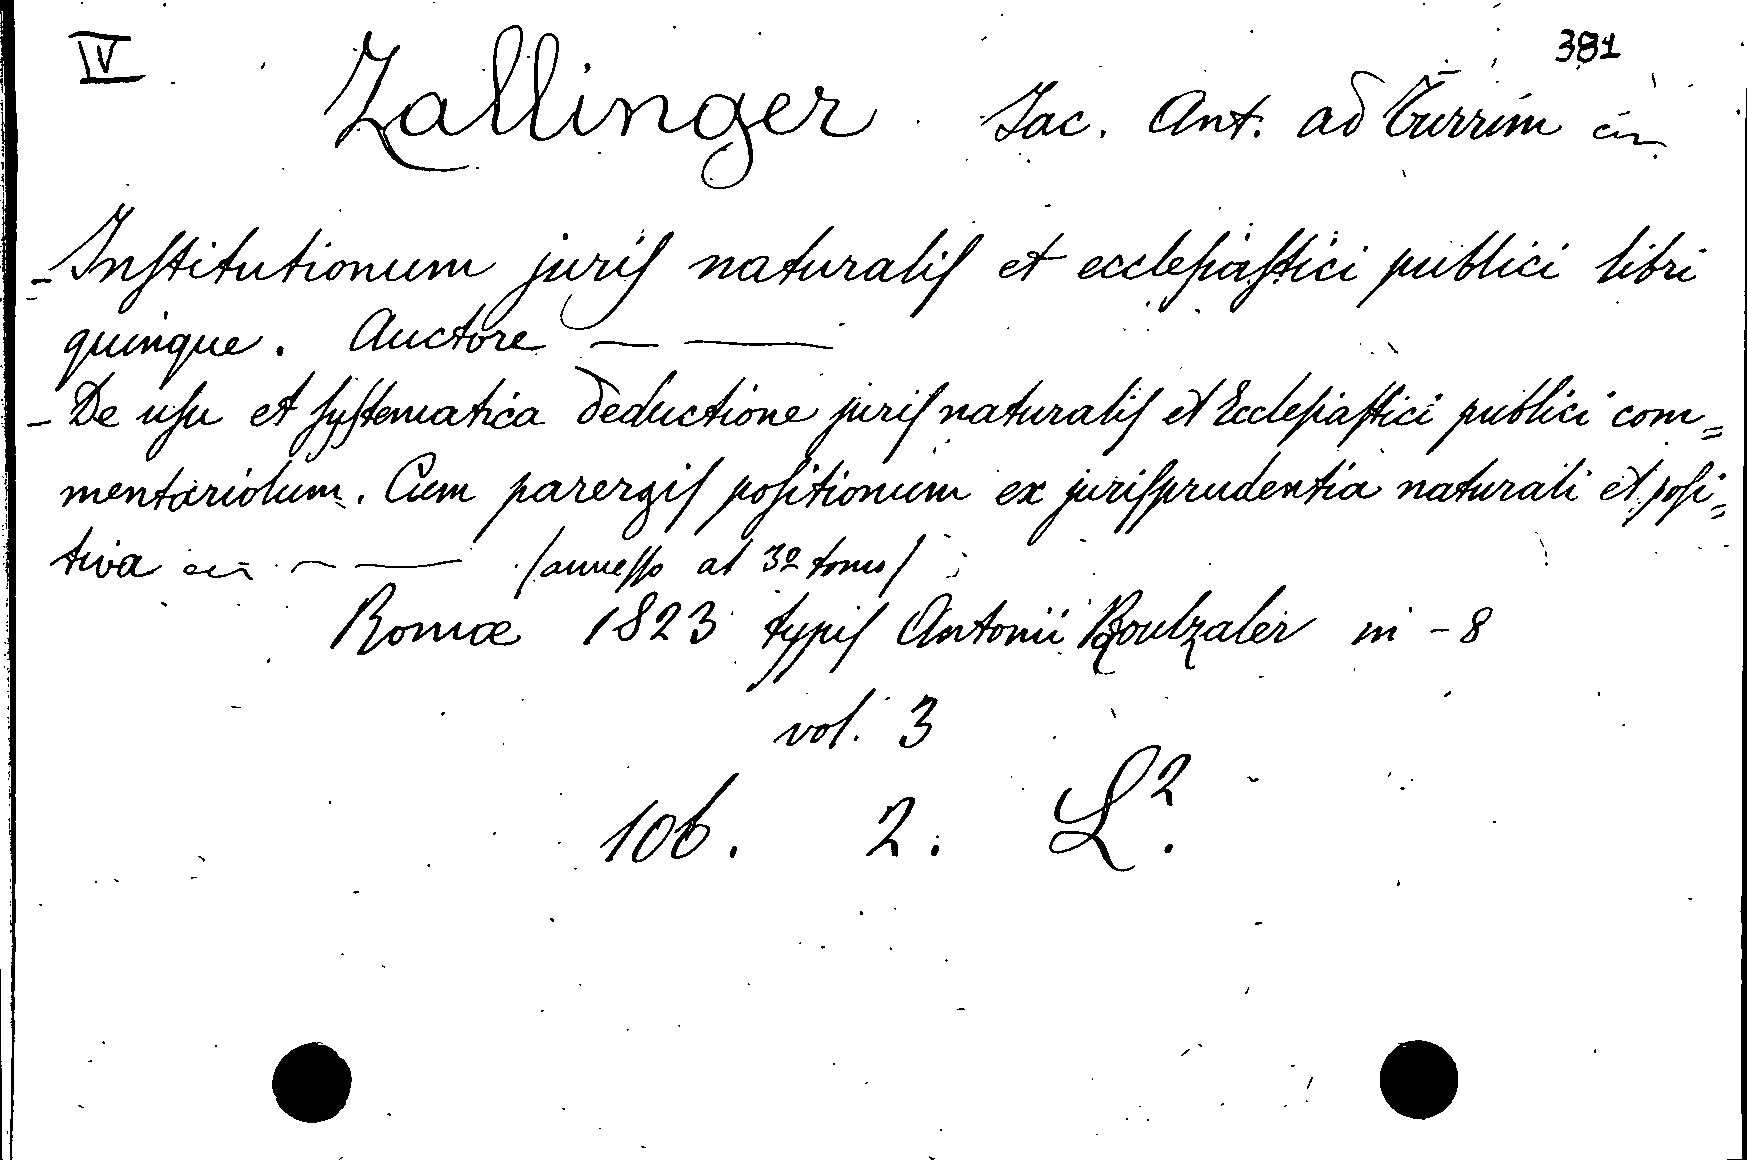 IV 381
Zallinger Jac. Ant. ad Turrim
- Inſtitutionum juriſ naturaliſ et eccleſiaſtici publici libri
quinque. Auctore — —
- De uſu et ſyſtematica deductione juriſ naturaliſ et Eccleſiaſtici publici com=
mentariolum. Cum parergiſ poſitionum ex juriſprudentia naturali et poſi=
tiva — — (anneſſo al 3º tomo)
Romæ 1823 typiſ Antonii Boulzaler in - 8
vol. 3
106. 2. L².